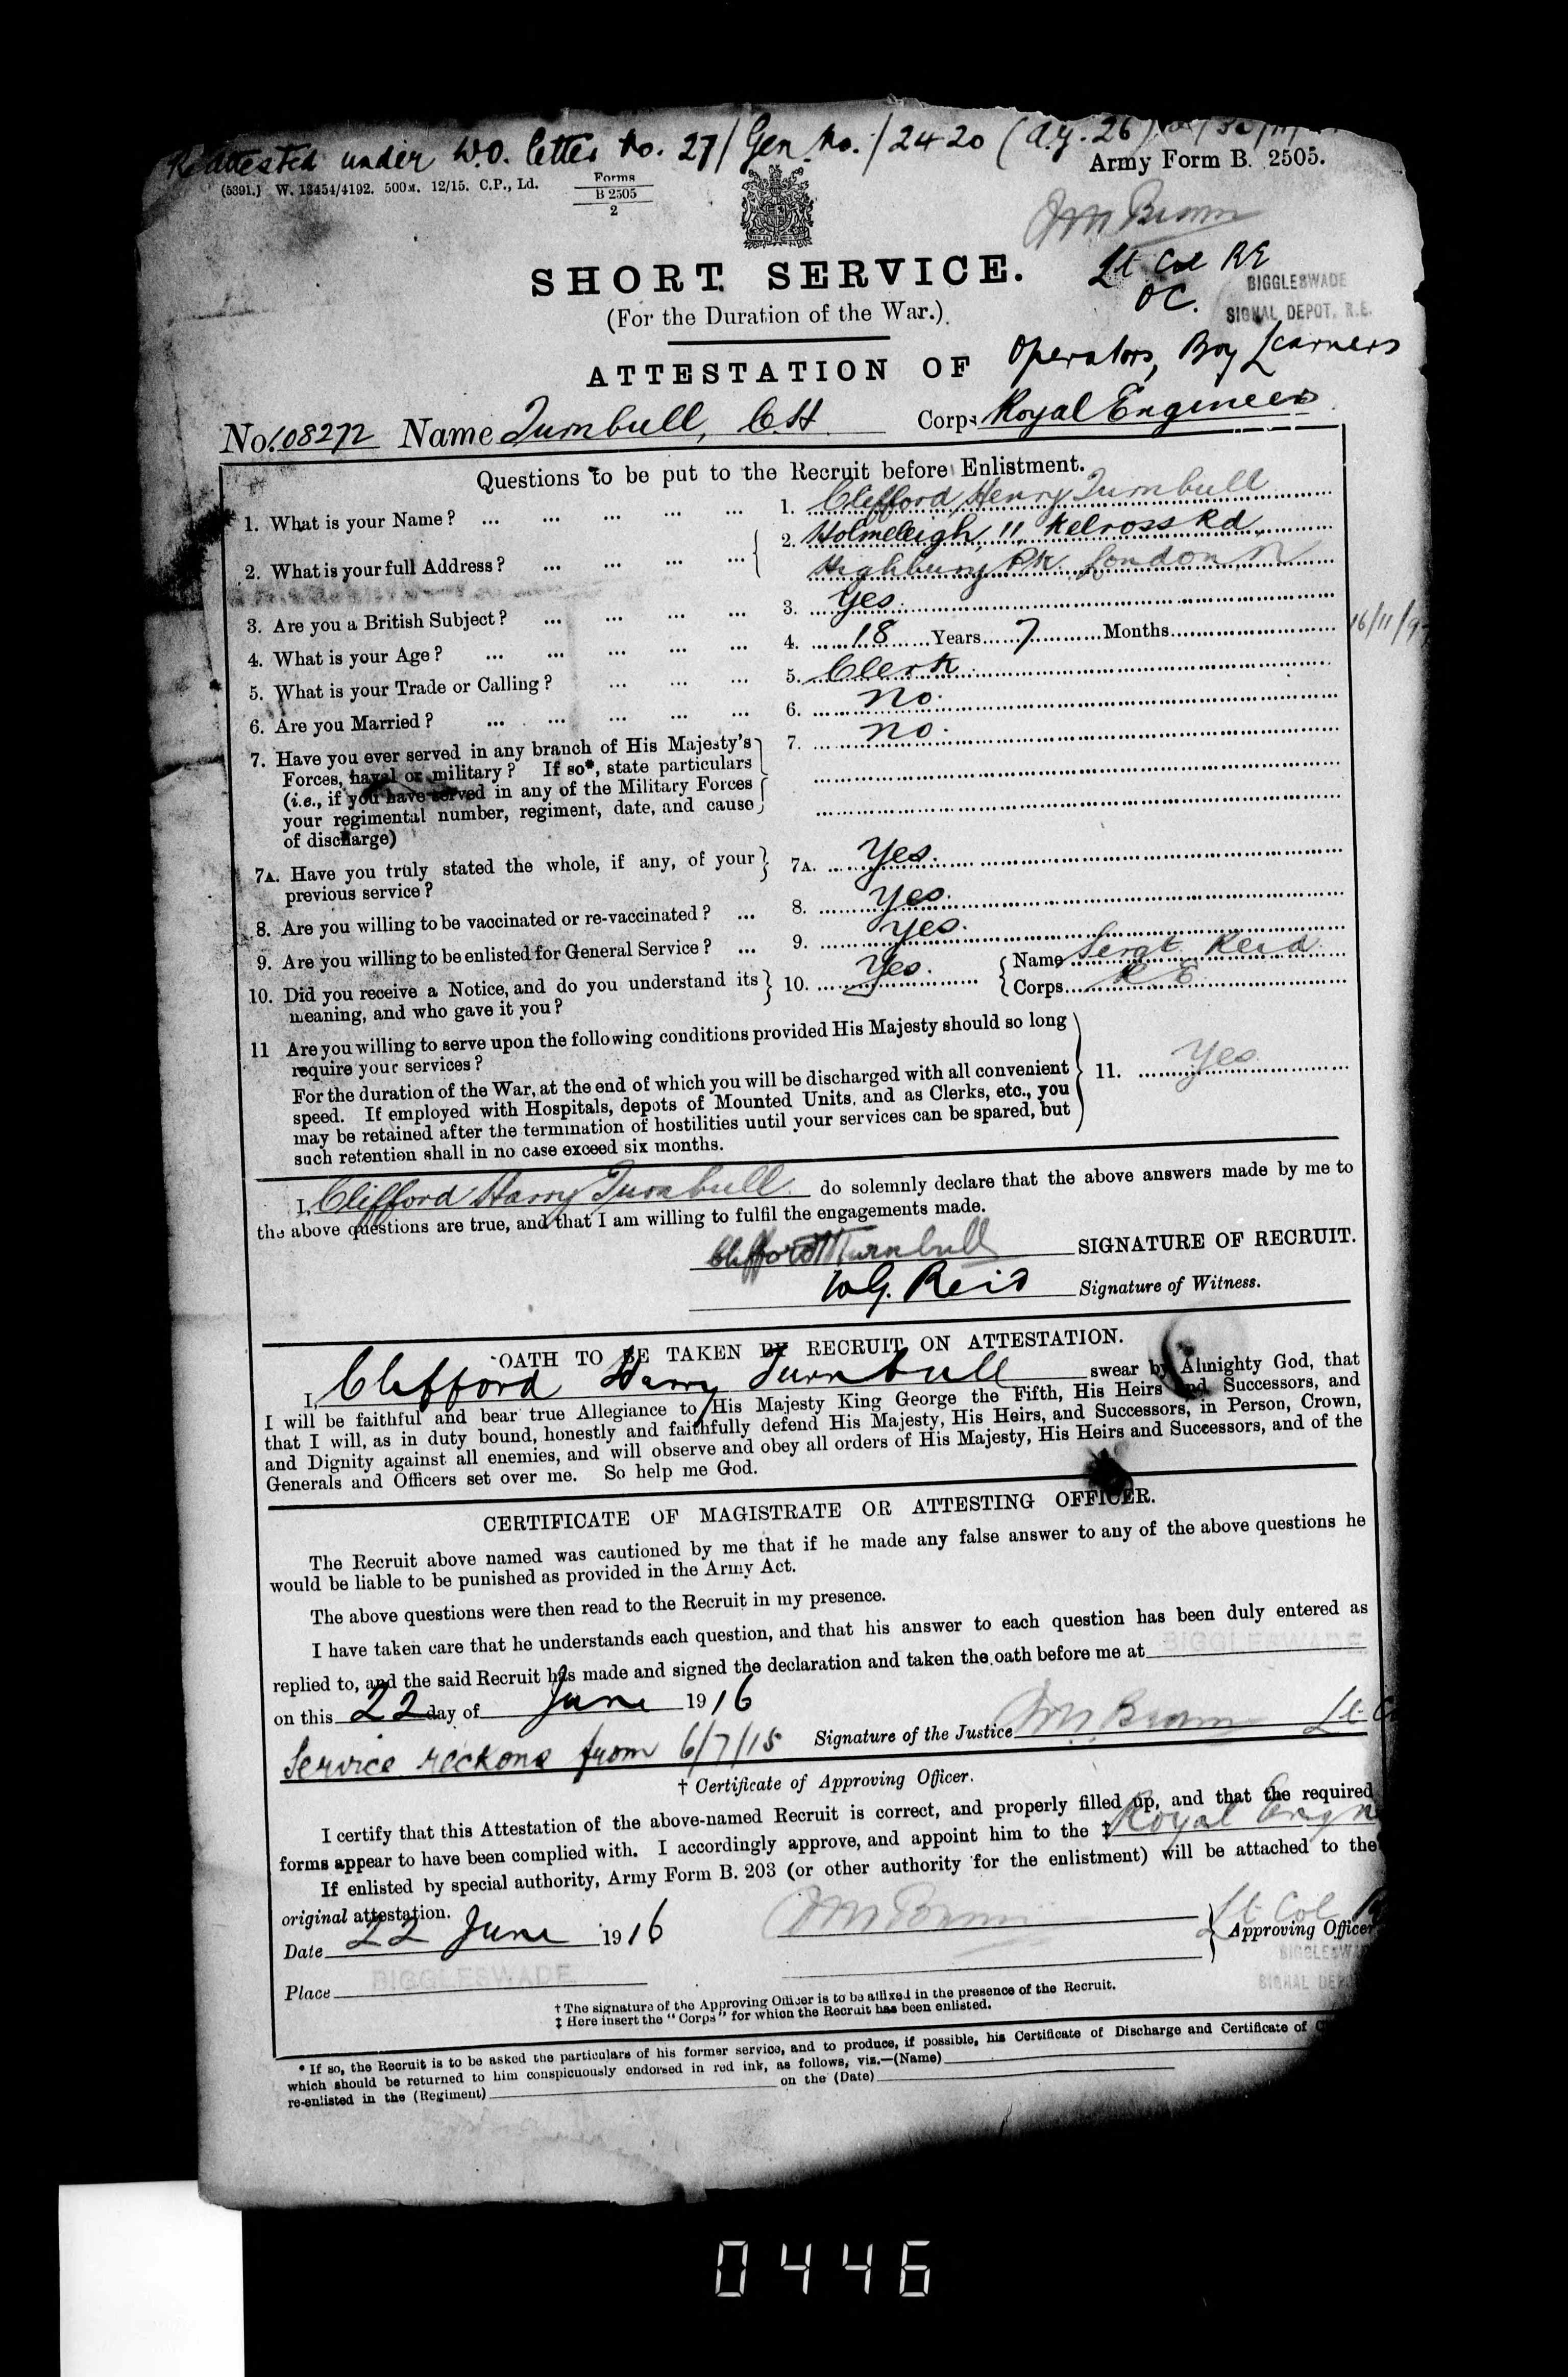 Reattested under W.O. letter No. 27/Gen. No./2420 (A.G. 26)
Army Form B. 2505.
(5391.) W. 13454/4192. 500M. 12/15. C.P., Ld.
Forms
B 2505
2
Lt Col RE
OC.
BIGGLESWADE
SIGNAL DEPOT, R.E.
SHORT SERVICE.
(For the Duration of the War.)
ATTESTATION OF Operators, Boy Learners
No. 108272 Name Turnbull, C.H Corps Royal Engineers
Questions to be put to the Recruit before Enlistment.
1. What is your Name? ... 1. Clifford Henry Turnbull
2. What is your full Address? ... 2. Holmeleigh, 11, Kelross Rd,
Highbury Pk London N
3. Are you a British Subject? ... 3. Yes.
4. What is your Age? ... 4. 18 Years 7 Months 16/11/9
5. What is your Trade or Calling? ... 5. Clerk.
6. Are you Married? ... 6. No.
7. Have you ever served in any branch of His Majesty's 7. No.
Forces, naval or military? If so*, state particulars
(i.e., if you have served in any of the Military Forces
your regimental number, regiment, date, and cause
of discharge)
7A. Have you truly stated the whole, if any, of your 7A. Yes.
previous service?
8. Are you willing to be vaccinated or re-vaccinated? ... 8. Yes.
9. Are you willing to be enlisted for General Service? ... 9. Yes.
10. Did you receive a Notice, and do you understand its 10. Yes. Name Sergt Reid.
meaning, and who gave it you? Corps R E
11 Are you willing to serve upon the following conditions provided His Majesty should so long
require your services?
For the duration of the War, at the end of which you will be discharged with all convenient 11. Yes
speed. If employed with Hospitals, depots of Mounted Units, and as Clerks, etc., you
may be retained after the termination of hostilities until your services can be spared, but
such retention shall in no case exceed six months.
I, Clifford Harry Turnbull do solemnly declare that the above answers made by me to
the above questions are true, and that I am willing to fulfil the engagements made.
Clifford H Turnbull SIGNATURE OF RECRUIT.
W.G. Reid Signature of Witness.
OATH TO BE TAKEN BY RECRUIT ON ATTESTATION.
I, Clifford Harry Turnbull swear by Almighty God, that
I will be faithful and bear true Allegiance to His Majesty King George the Fifth, His Heirs and Successors, and
that I will, as in duty bound, honestly and faithfully defend His Majesty, His Heirs, and Successors, in Person, Crown,
and Dignity against all enemies, and will observe and obey all orders of His Majesty, His Heirs and Successors, and of the
Generals and Officers set over me. So help me God.
CERTIFICATE OF MAGISTRATE OR ATTESTING OFFICER.
The Recruit above named was cautioned by me that if he made any false answer to any of the above questions he
would be liable to be punished as provided in the Army Act.
The above questions were then read to the Recruit in my presence.
I have taken care that he understands each question, and that his answer to each question has been duly entered as
replied to, and the said Recruit has made and signed the declaration and taken the oath before me at BIGGLESWADE
on this 22 day of June 1916
Service reckons from 6/7/15 Signature of the Justice Lt C
† Certificate of Approving Officer.
I certify that this Attestation of the above-named Recruit is correct, and properly filled up, and that the required
forms appear to have been complied with. I accordingly approve, and appoint him to the ‡ Royal Engn
If enlisted by special authority, Army Form B. 203 (or other authority for the enlistment) will be attached to the
original attestation.
Date 22 June 1916 Lt Col R
Approving Officer
Place BIGGLESWADE
BIGGLESWA
SIGNAL DEPO
† The signature of the Approving Officer is to be affixed in the presence of the Recruit.
‡ Here insert the "Corps" for which the Recruit has been enlisted.
* If so, the Recruit is to be asked the particulars of his former service, and to produce, if possible, his Certificate of Discharge and Certificate of C
which should be returned to him conspicuously endorsed in red ink, as follows, viz.—(Name)
re-enlisted in the (Regiment) on the (Date)
0446